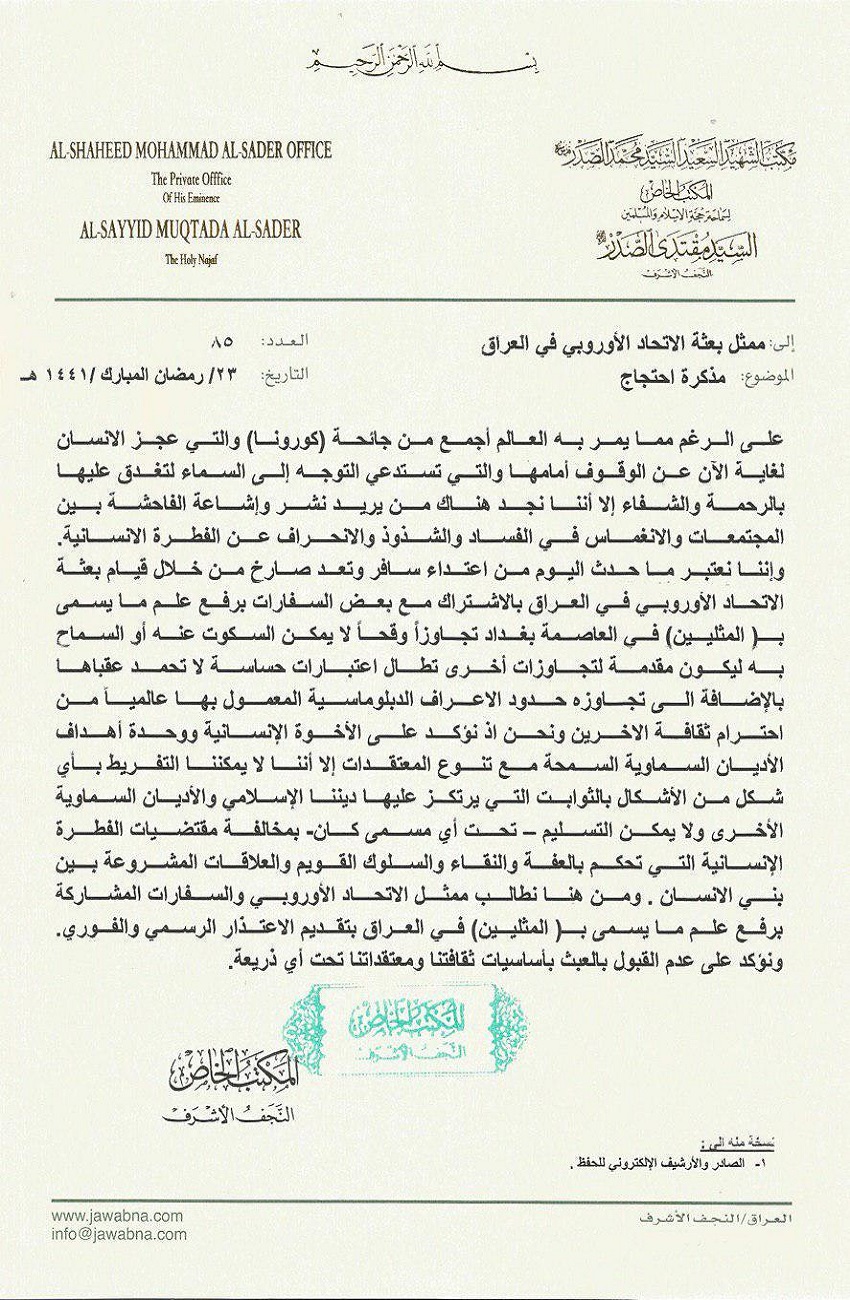 بسم الله الرحمن الرحيم
AL-SHAHEED MOHAMMAD AL-SADER OFFICE
The Private Offfice
Of His Eminence
AL-SAYYID MUQTADA AL-SADER
The Holy Najaf
مكتب الشهيد السعيد السيد محمد الصدر
المكتب الخاص
لسماحة حجة الإسلام والمسلمين
السيد مقتدى الصدر
النجف الأشرف
إلى: ممثل بعثة الاتحاد الأوروبي في العراق
العدد: ٨٥
الموضوع: مذكرة احتجاج
التاريخ: ٢٣/ رمضان المبارك /١٤٤١ هـ
على الرغم مما يمر به العالم أجمع من جائحة (كورونا) والتي عجز الانسان
لغاية الآن عن الوقوف أمامها والتي تستدعي التوجه إلى السماء لتغدق عليها
بالرحمة والشفاء إلا أننا نجد هناك من يريد نشر وإشاعة الفاحشة بين
المجتمعات والانغماس في الفساد والشذوذ والانحراف عن الفطرة الانسانية.
وإننا نعتبر ما حدث اليوم من اعتداء سافر وتعد صارخ من خلال قيام بعثة
الاتحاد الأوروبي في العراق بالاشتراك مع بعض السفارات برفع علم ما يسمى
بـ( المثليين) في العاصمة بغداد تجاوزاً وقحاً لا يمكن السكوت عنه أو السماح
به ليكون مقدمة لتجاوزات أخرى تطال اعتبارات حساسة لا تحمد عقباها
بالإضافة الى تجاوزه حدود الاعراف الدبلوماسية المعمول بها عالمياً من
احترام ثقافة الاخرين ونحن اذ نؤكد على الأخوة الإنسانية ووحدة أهداف
الأديان السماوية السمحة مع تنوع المعتقدات إلا أننا لا يمكننا التفريط بأي
شكل من الأشكال بالثوابت التي يرتكز عليها ديننا الإسلامي والأديان السماوية
الأخرى ولا يمكن التسليم – تحت أي مسمى كان- بمخالفة مقتضيات الفطرة
الإنسانية التي تحكم بالعفة والنقاء والسلوك القويم والعلاقات المشروعة بين
بني الانسان . ومن هنا نطالب ممثل الاتحاد الأوروبي والسفارات المشاركة
برفع علم ما يسمى بـ( المثليين) في العراق بتقديم الاعتذار الرسمي والفوري.
ونؤكد على عدم القبول بالعبث بأساسيات ثقافتنا ومعتقداتنا تحت أي ذريعة.
المكتب الخاص
النجف الأشرف
المكتب الخاص
النجف الأشرف
نسخة منه الى :
١- الصادر والأرشيف الإلكتروني للحفظ .
www.jawabna.com
info@jawabna.com
العراق/النجف الأشرف